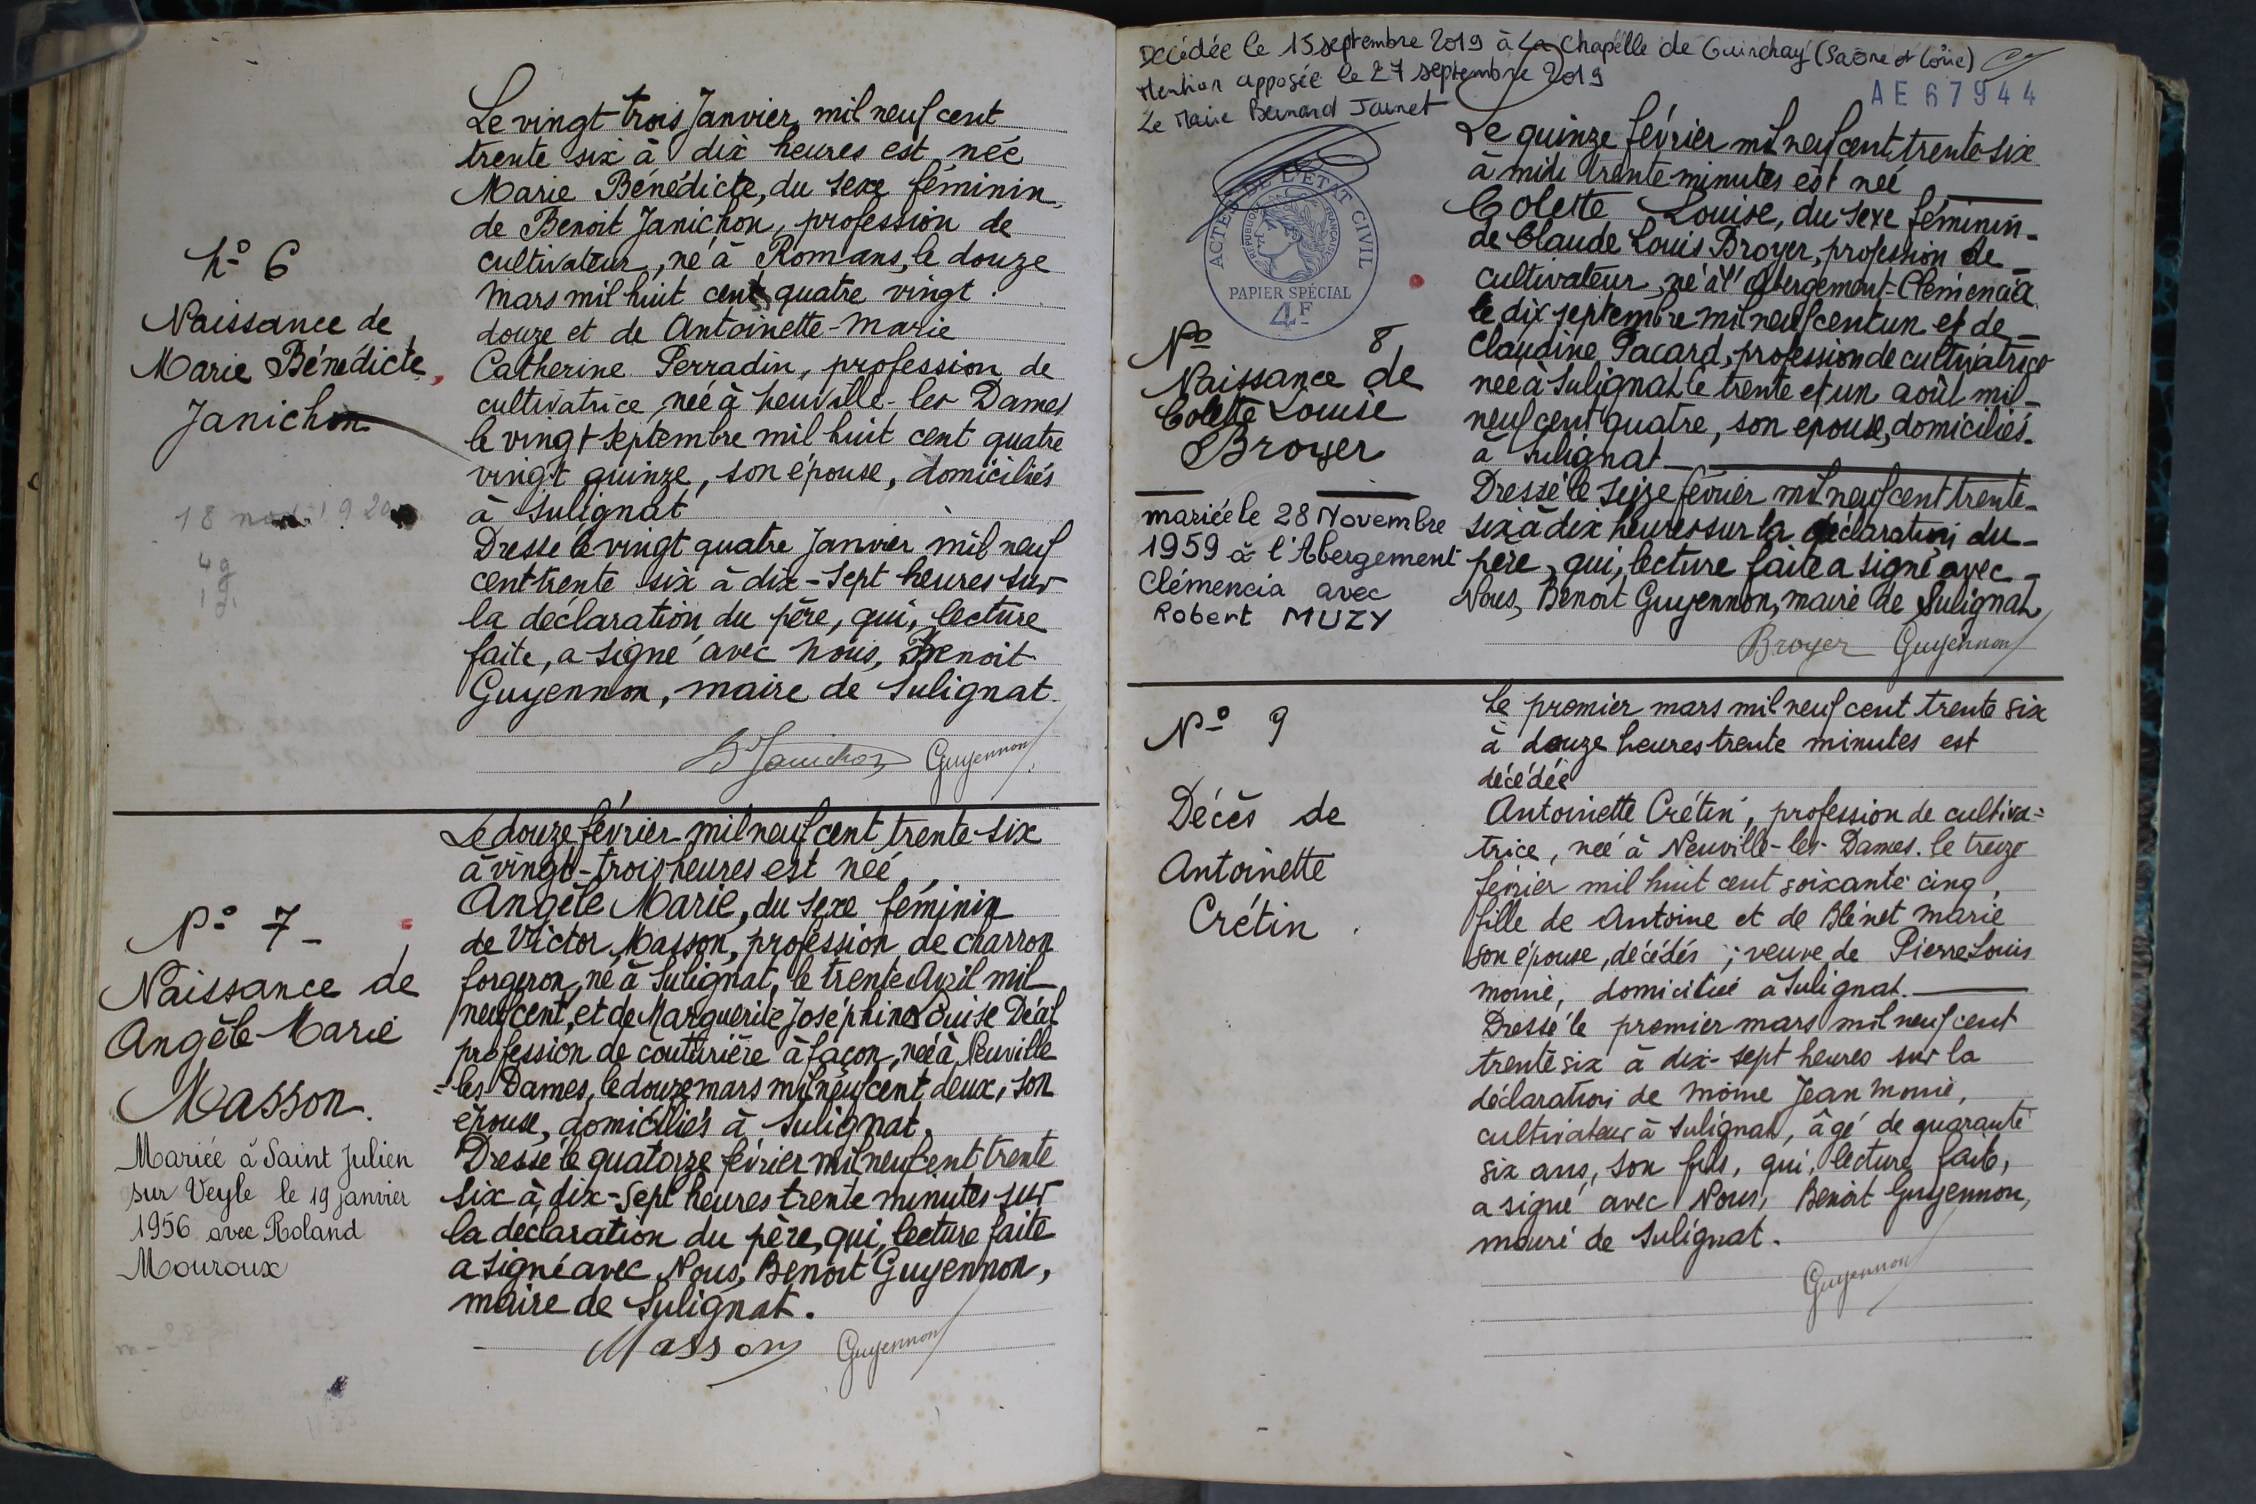 Le vingt trois Janvier mil neuf cent
trente six à dix heures est née
Marie Bénédicte, du sexe féminin,
de Benoit Janichon, profession de
cultivateur, né à Romans, le douze
mars mil huit cent quatre vingt
douze et de Antoinette-Marie
Catherine Perradin, profession de
cultivatrice née à Neuville-les-Dames
le vingt septembre mil huit cent quatre
vingt quinze, son épouse, domiciliés
à Sulignat
Dressé le vingt quatre Janvier mil neuf
cent trente six à dix-sept heures sur
la déclaration du père, qui, lecture
faite, a signé avec nous, Benoit
Guyennon, maire de Sulignat.
Bt Janichon Guyennon
No 6
Naissance de
Marie Bénédicte
Janichon
Le douze février mil neuf cent trente-six
à vingt-trois heures est née
Angèle Marie, du sexe féminin
de Victor Masson, profession de charron
forgeron, né à Sulignat, le trente Avril mil
neuf cent, et de Marguerite Joséphine Louise Déal
profession de couturière à façon, née à Neuville
-les-Dames, le douze mars mil neuf cent deux, son
épouse, domiciliés à Sulignat.
Dressé le quatorze février mil neuf cent trente
six à dix-sept heures trente minutes sur
la déclaration du père, qui, lecture faite
a signé avec Nous, Benoit Guyennon,
maire de Sulignat.
Masson Guyennon
No 7-
Naissance de
Angèle-Marie
Masson.
Mariée à Saint Julien
sur Veyle le 19 janvier
1956 avec Roland
Mouroux
Décédée le 15 septembre 2019 à La Chapelle de Guinchay (Saône et Loire)
Mention apposée le 27 septembre 2019
Le Maire Bernard Jaunet
AE 67944
ACTES DE L'ÉTAT CIVIL
RÉPUBLIQUE FRANÇAISE
PAPIER SPÉCIAL
4F
Le quinze février mil neuf cent trente-six
à midi trente minutes est née
Colette Louise, du sexe féminin-
de Claude Louis Broyer, profession de
cultivateur, né à l'Abergement-Clémencia
le dix septembre mil neuf cent un et de
Claudine Pacard, profession de cultivatrice
née à Sulignat le trente et un août mil-
neuf cent quatre, son épouse, domiciliés.
à Sulignat
Dressé le seize février mil neuf cent trente-
six à dix heures sur la déclaration du-
père, qui, lecture faite a signé avec-
Nous, Benoit Guyennon, maire de Sulignat
Broyer Guyennon
No 8
Naissance de
Colette Louise
Broyer
mariée le 28 Novembre
1959 à l'Abergement
Clémencia avec
Robert MUZY
Le premier mars mil neuf cent trente six
à douze heures trente minutes est
décédée
Antoinette Crétin, profession de cultiva=
trice, née à Neuville-les-Dames. le treize
février mil huit cent soixante cinq,
fille de Antoine et de Blénet Marie
son épouse, décédés ; veuve de Pierre Louis
moine, domiciliée à Sulignat.
Dressé le premier mars mil neuf cent
trente six à dix-sept heures sur la
déclaration de moine Jean Marie,
cultivateur à Sulignat, âgé de quarante
six ans, son fils, qui, lecture faite,
a signé avec Nous, Benoit Guyennon,
maire de Sulignat.
Guyennon
No 9
Décès de
Antoinette
Crétin